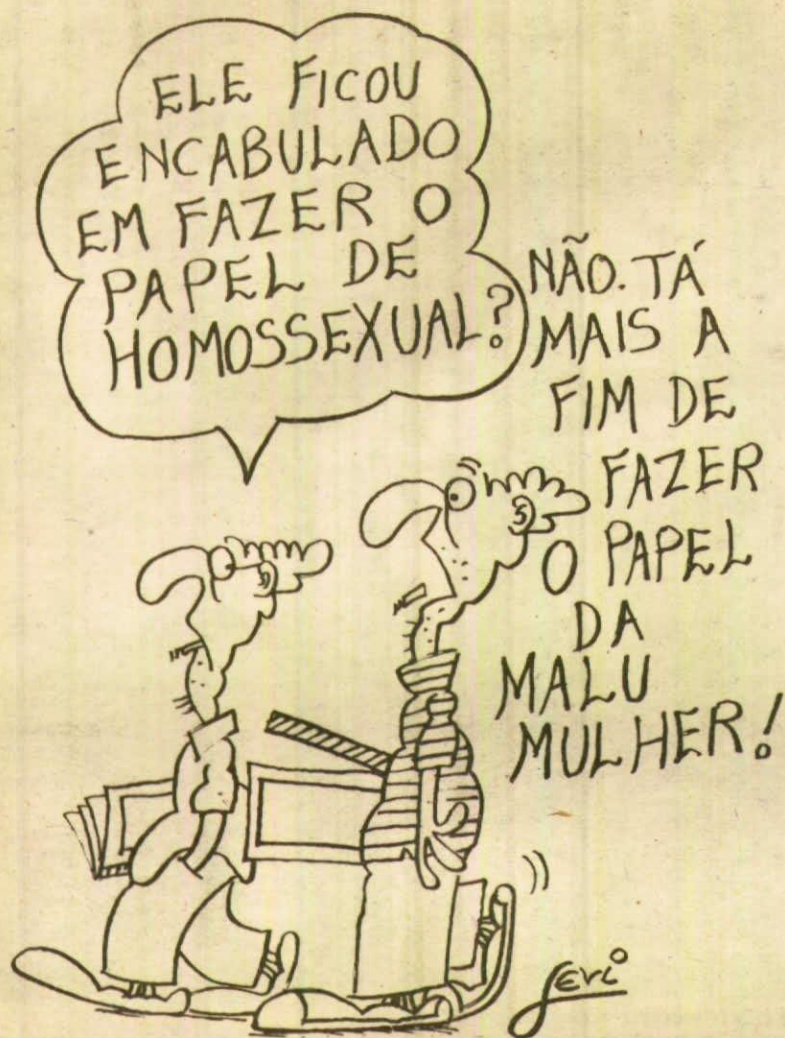 ELE FICOU
ENCABULADO
EM FAZER O
PAPEL DE
HOMOSSEXUAL?
NÃO. TÁ
MAIS A
FIM DE
FAZER
O PAPEL
DA
MALU
MULHER!